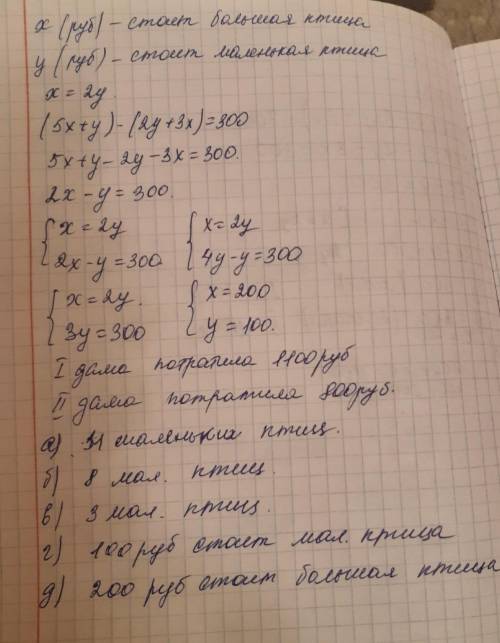 x (руб) – стоит большая птица
y (руб) – стоит маленькая птица
x = 2y.
(5x+y) – (2y+3x) = 300
5x+y – 2y – 3x = 300.
2x – y = 300.
{ x = 2y { x = 2y
{ 2x – y = 300 { 4y – y = 300
{ x = 2y. { x = 200
{ 3y = 300 { y = 100.
I дама потратила 1100 руб
II дама потратила 800 руб.
а) 11 маленьких птиц.
б) 8 мал. птиц
в) 3 мал. птиц.
г) 100 руб стоит мал. птица
д) 200 руб стоит большая птица